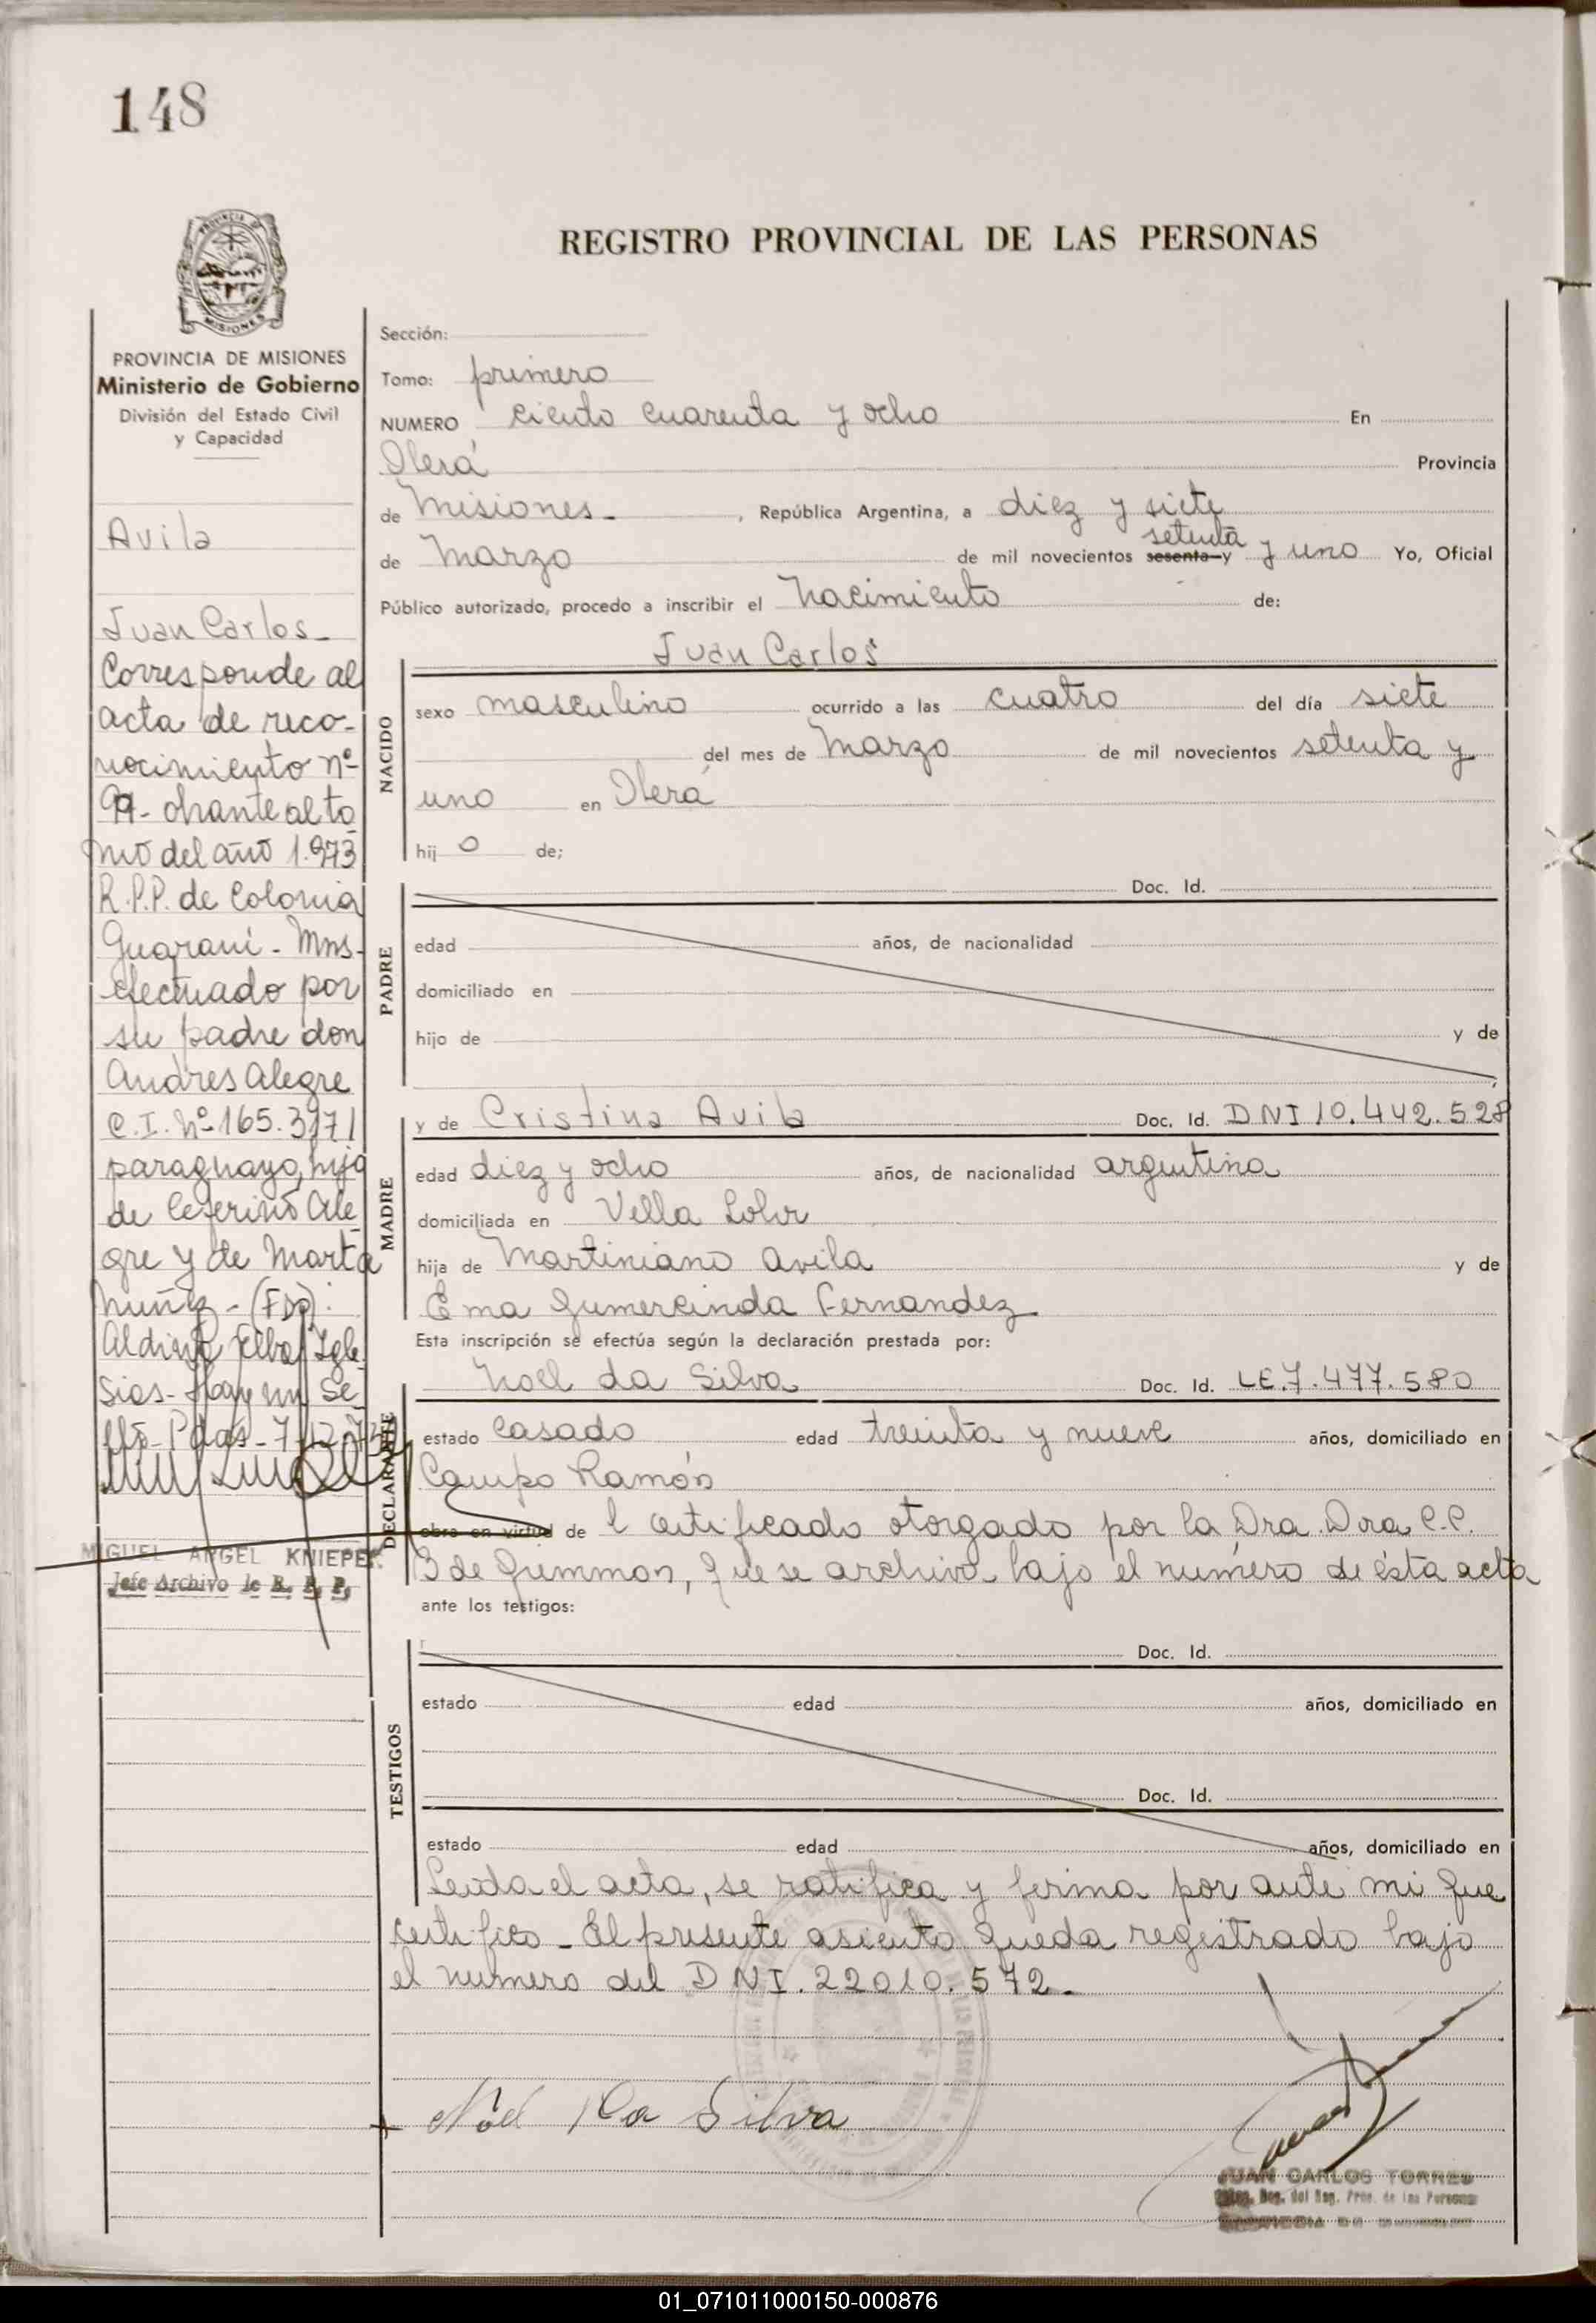 148
REGISTRO PROVINCIAL DE LAS PERSONAS
PROVINCIA DE MISIONES
Ministerio de Gobierno
División del Estado Civil
y Capacidad
Avila
Juan Carlos -
Corresponde al
acta de reco-
nocimiento nº
99 - obrante al to
mo del año 1.973
R.P.P. de Colonia
Guaraní - Mns-
efectuado por
su padre don
Andres Alegre
C.I. Nº 165.317
paraguayo, hijo
de Ceferino Ale
gre y de Marta
Nuñez - (FDO):
Aldino Elba Igle
sias - Hay un Se
llo - Pdas - 7-12-73
MIGUEL ANGEL KNIEPER
Jefe Archivo de R. P. P.
Sección:
Tomo: primero
NUMERO ciento cuarenta y ocho En
Oberá Provincia
de Misiones - , República Argentina, a diez y siete
de Marzo de mil novecientos sesenta y setenta y uno Yo, Oficial
Público autorizado, procedo a inscribir el Nacimiento de:
Juan Carlos
NACIDO
sexo masculino ocurrido a las cuatro del día siete
del mes de Marzo de mil novecientos setenta y
uno en Oberá
hij o de;
PADRE
Doc. Id.
edad años, de nacionalidad
domiciliado en
hijo de y de
MADRE
y de Cristina Avila Doc. Id. DNI 10.442.528
edad diez y ocho años, de nacionalidad argentina
domiciliada en Villa Lohr
hija de Martiniano Avila y de
Ema Gumercinda Fernandez
Esta inscripción se efectúa según la declaración prestada por:
DECLARANTE
Noel da Silva Doc. Id. LE.7.477.580
estado casado edad treinta y nueve años, domiciliado en
Campo Ramón
obra en virtud de l certificado otorgado por la Dra. Dora C.C.
B de Grimmon, que se archiva bajo el número de ésta acta
ante los testigos:
TESTIGOS
Doc. Id.
estado edad años, domiciliado en
Doc. Id.
estado edad años, domiciliado en
Leida el acta, se ratifica y firma por ante mi que
certifico - El presente asiento queda registrado bajo
el numero del DNI. 22010.572.
Noel Da Silva
JUAN CARLOS TORRES
del Reg. Prov. de las Personas
01_071011000150-000876